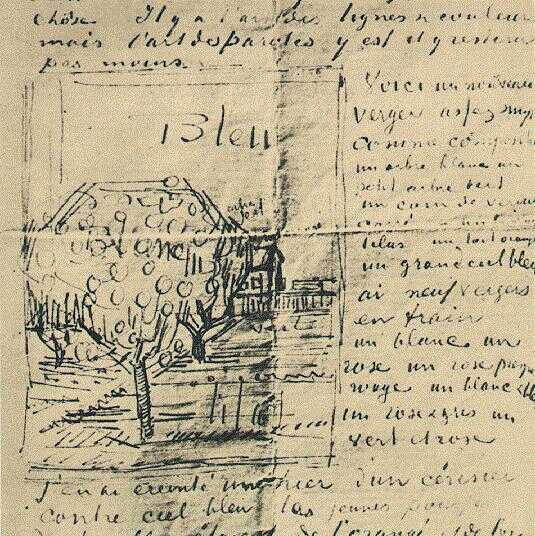 chose. Il y a l'art des lignes & couleurs
mais l'art des paroles y est et y restera
pas moins.
Voici un nouveau
verger assez simple
comme composition
un arbre blanc un
petit arbre vert
un coin de verdure
Bleu
lilas un toit orangé
un grand ciel bleu
Blanc
ai neuf vergers
en train
vert
un blanc un
rose un rose presque
lilas
rouge un blanc &
un rose & gris un
vert et rose
J'en ai éreinté un hier d'un cérisier
contre ciel bleu les jeunes
de l'orangé